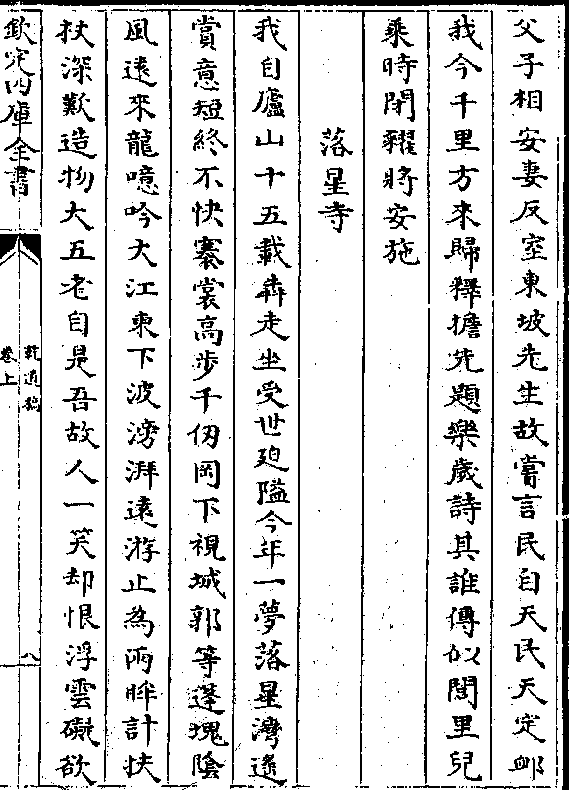 父子相安妻反室東坡先生故嘗言民自天民天定卹
我今千里方來歸釋擔先題樂歲詩其誰傳似閭里兒
乘時閉糶將安施
落星寺
我自廬山十五載犇走坐受世廹隘今年一夢落星灣遂
賞意短終不快褰裳高步千仭岡下視城郭等蓬塊陰
風遠來龍噫吟大江東下波滂湃遠游止為兩眸計扶
扶深歎造物大五老自是吾故人一笑却恨浮雲礙欲
欽定四庫全書
乾道稿
卷上
八